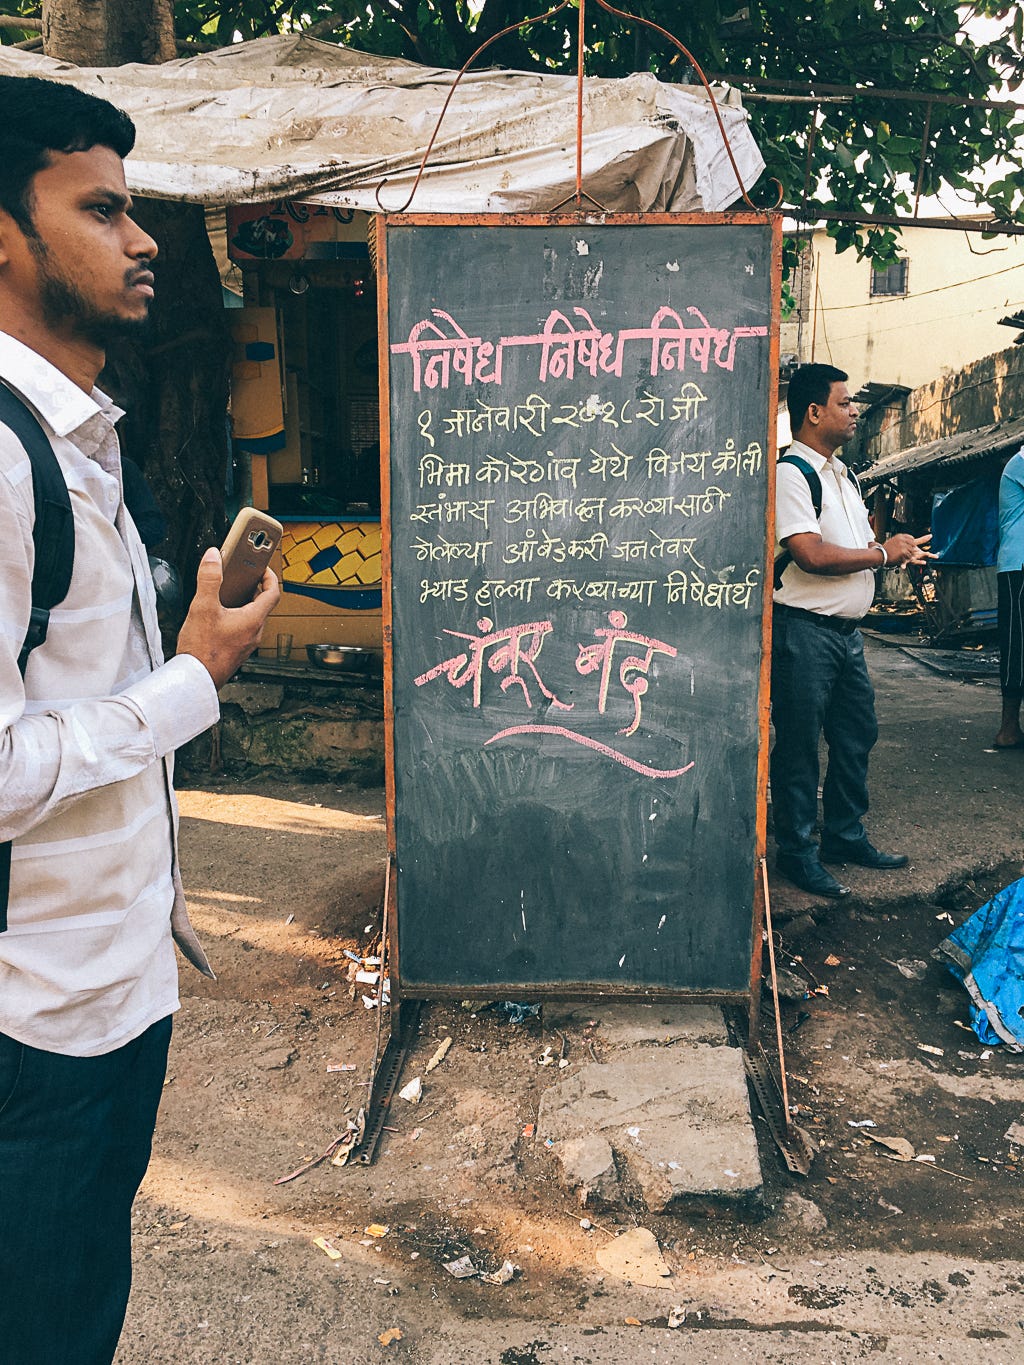 निषेध निषेध निषेध
१ जानेवारी २०१८ रोजी
भिमा कोरेगांव येथे विजय क्रांती
स्तंभास अभिवादन करण्यासाठी
गेलेल्या आंबेडकरी जनतेवर
भ्याड हल्ला करण्याच्या निषेधार्थ
चेंबूर बंद